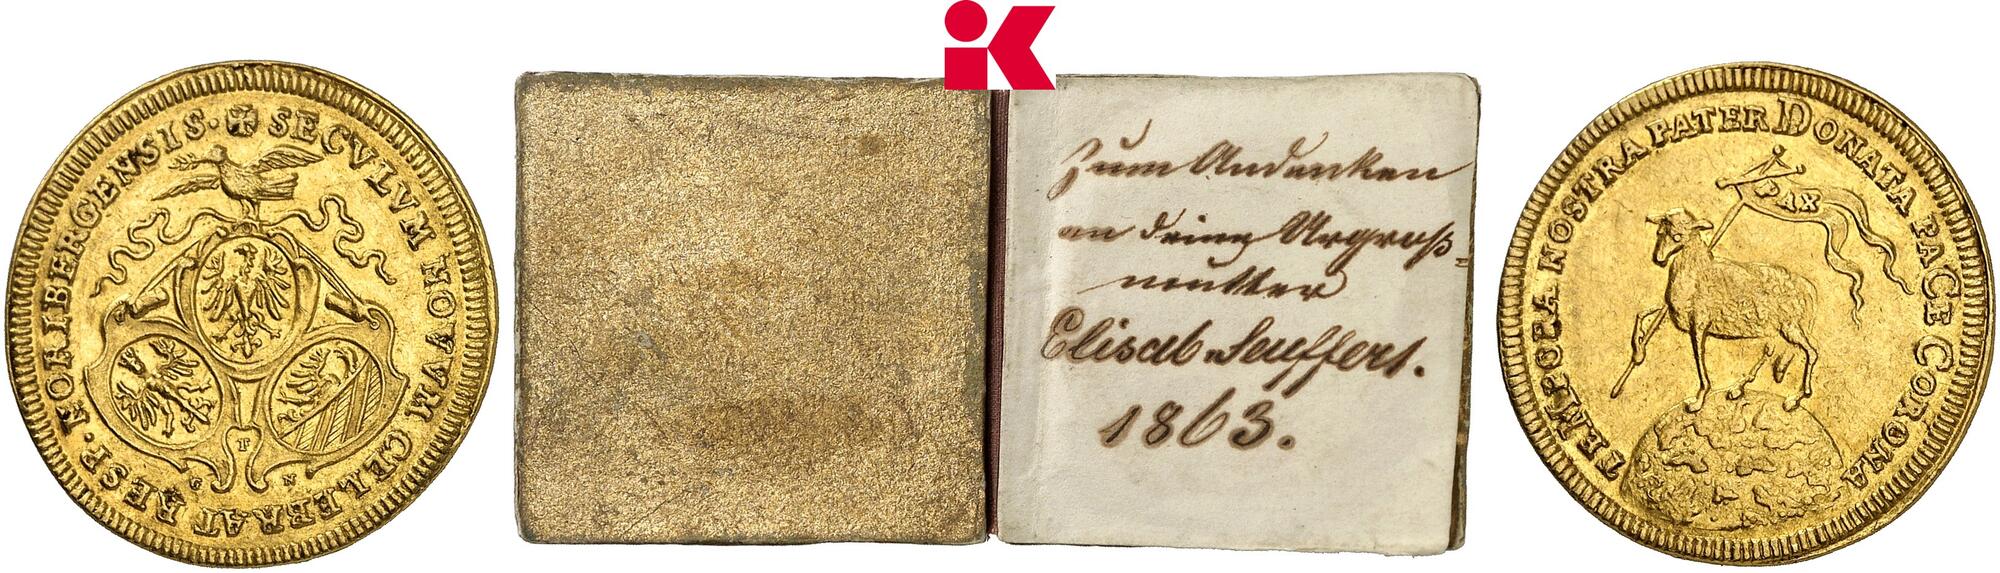 ✠ SECVLVM NOVVM CELEBRAT RESP. NORIBERGENSIS·
F
G N
iK
Zum Andenken
an deine Urgroß-
mutter
Elisab. Seuffert.
1863.
TEMPORA NOSTRA PATER DONATA PACE CORONA
PAX